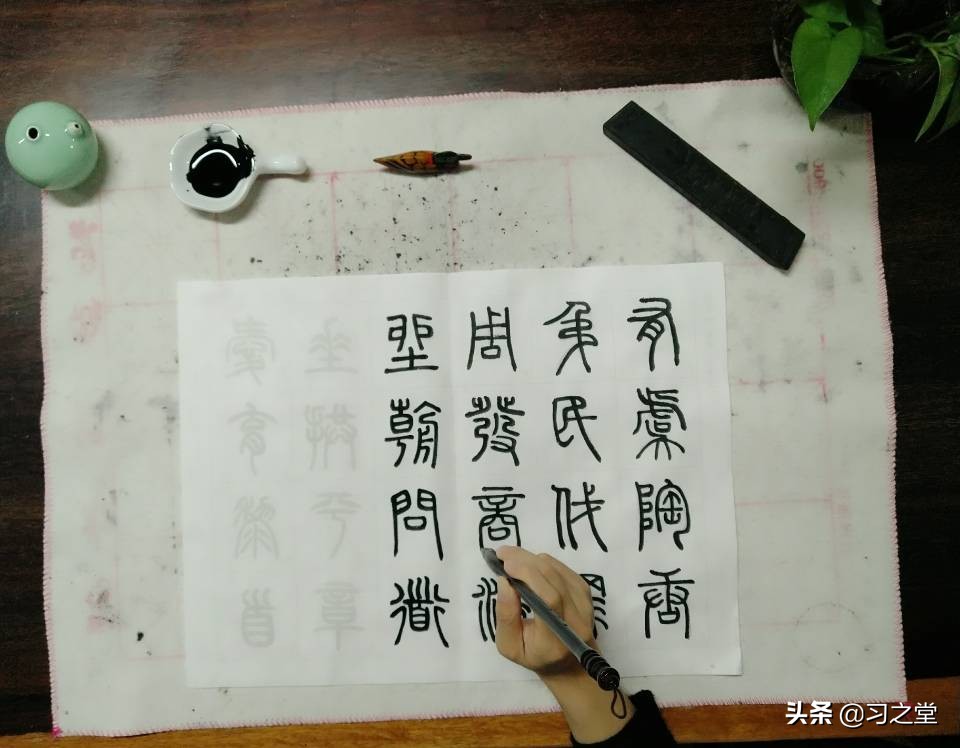 有虞陶唐
弔民伐罪
周發商湯
坐朝問道
垂拱平章
愛育黎首
头条 @习之堂